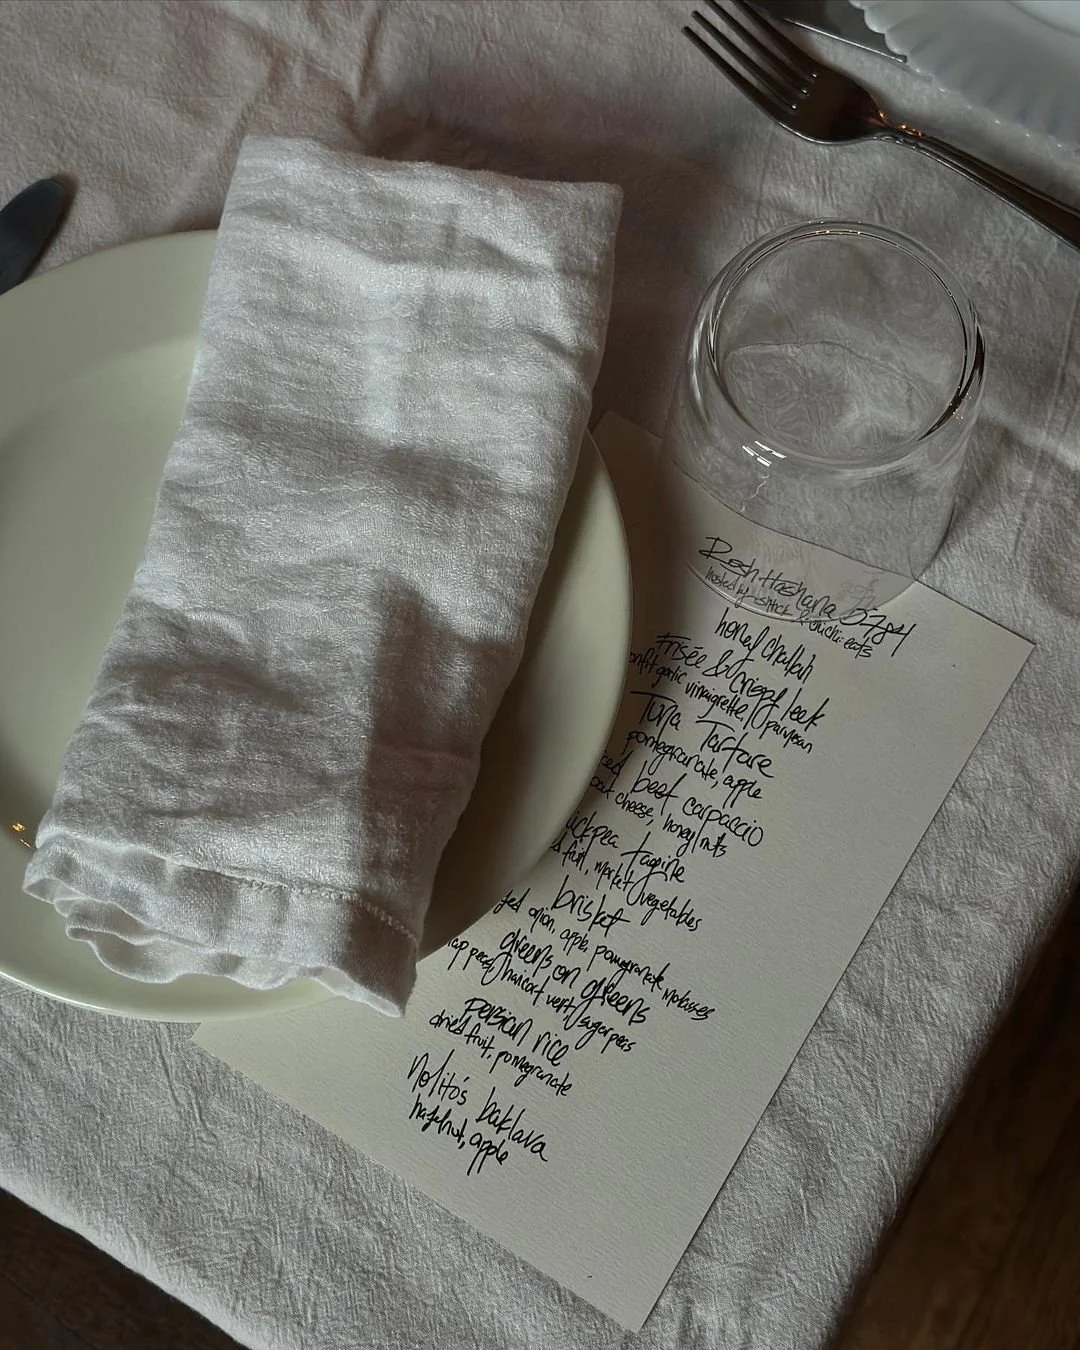 Rosh Hashana 5784
hosted by shtick & chichi eats
honey challah
Frisée & Crispy leek
onfit garlic vinaigrette, parmesan
Tuna Tartare
pomegranate, apple
beet carpaccio
oat cheese, honey, nuts
ickpea tagine
d fruit, market vegetables
brisket
onion, apple, pomegranate molasses
greens on greens
ap peas, haricort vert, sugar peas
persian rice
dried fruit, pomegranate
Nolito's baklava
hazelnut, apple